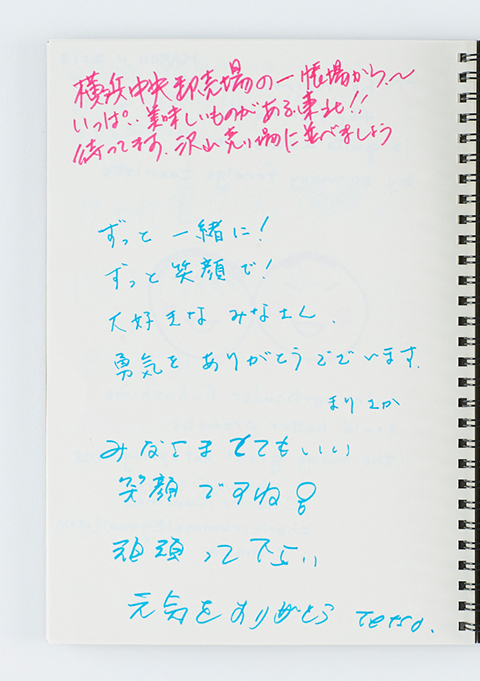 横浜中央卸売場の一帳場から、〜
いっぱい美味しいものがある東北!!
待ってます。沢山売り場に並べましょう
ずっと 一緒に!
ずっと 笑顔で!
大好きな みなさん、
勇気を ありがとうございます。
まりこか
みなさま とてもいい
笑顔 ですね!
頑張って下さい
元気をありがとう Tetsu.